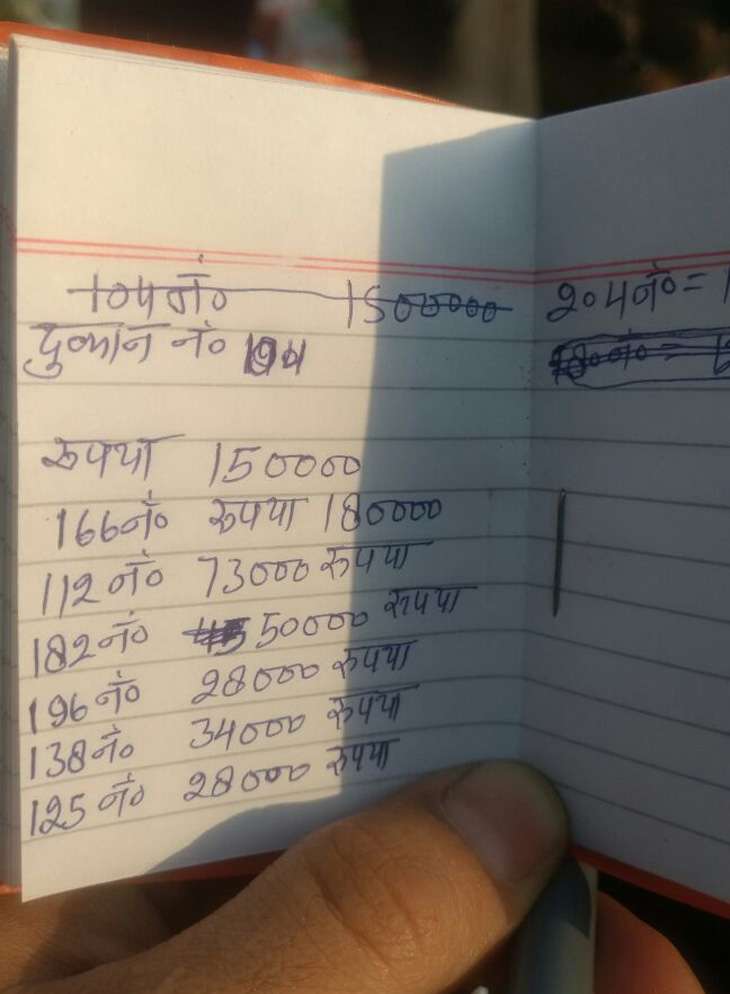 104 नं०
दुकान नं०
रुपया 150000
166नं० रुपया 180000
112 नं० 73000 रुपया
182नं० 50000 रुपया
196 नं० 28000 रुपया
138नं० 34000 रुपया
125 नं० 28000 रुपया
204नं० =